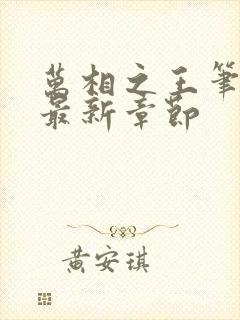 萬相之王筆
最新章節
黄安琪